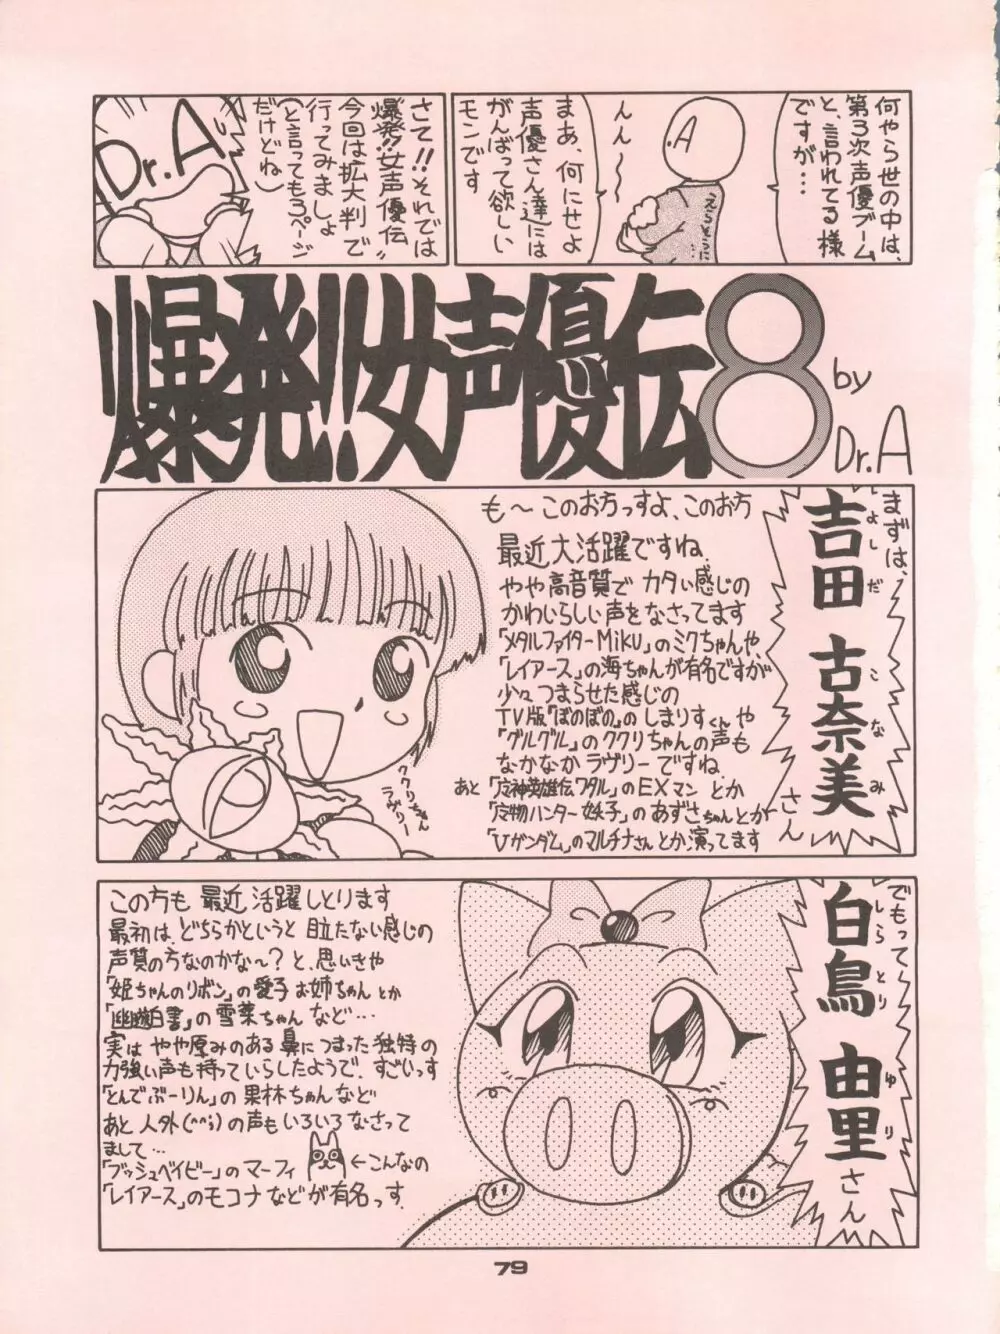 何やら世の中は、
第3次声優ブーム
と、言われてる様
ですが…
.A
えらそうに…
んんー
まあ、何にせよ
声優さん達には
がんばって欲しい
モンです
さて!!それでは
"爆発!!女声優伝"
今回は拡大判で
行ってみましょ
(と言っても3ページ
だけどね)
Dr.A
爆発!!女声優伝8
by
Dr.A
まずは、
吉田 古奈美
よしだ こなみ
さん
も〜このお方っすよ、このお方
最近大活躍ですね.
やや高音質で カタい感じの
かわいらしい声をなさってます
「メタルファイターMiKU」のミクちゃんや、
「レイアース」の海ちゃんが有名ですが
少々つまらせた感じの
TV版「ぼのぼの」の しまりすくん や
「グルグル」のククリちゃんの声も
なかなか ラヴリー ですね.
あと「魔神英雄伝ワタル」のEXマン とか
「怪物ハンター妖子」のあずさちゃんとか
「Vガンダム」のマルチナさんとか演ってます
ククリちゃん
ラヴリー
でもって、
白鳥 由里
しらとり ゆり
さん
この方も 最近 活躍しとります
最初は、どちらかというと 目立たない感じの
声質の方なのかな〜? と、思いきや
「姫ちゃんのリボン」の愛子お姉ちゃん とか
「幽遊白書」の雪菜ちゃん など…
実は やや厚みのある鼻につまった独特の
力強い声も持っていらしたようで、すごいっす
「とんでぶーりん」の果林ちゃんなど
あと 人外(^^;)の声もいろいろ なさって
まして…
「ブッシュベイビー」のマーフィ
←こんなの
「レイアース」のモコナなどが有名っす.
79